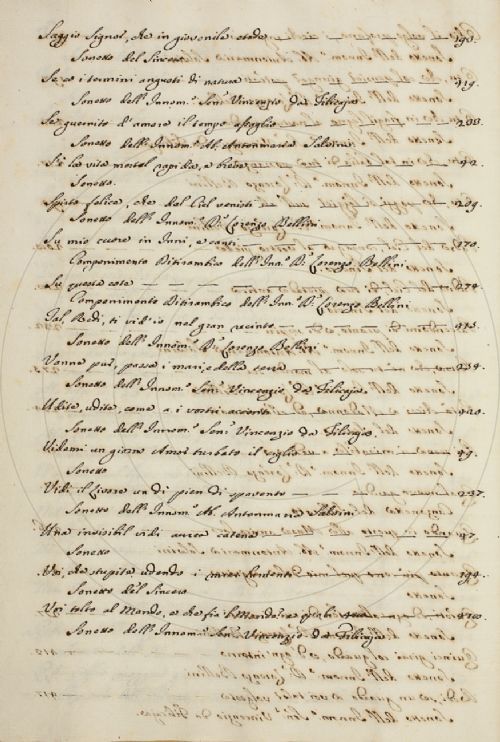 Saggio Signor, che in giovenile etade — 190.
Sonetto del Sincero
Se a i termini angusti di natura — 219.
Sonetto dell'Innom.º Sen.r Vincenzio da Filicaja.
Se guernito d'amore il tempo — 233.
Sonetto dell'Innom.º Ab. Antonmaria Salvini.
Se la vita mortal rapida, e breve — 92.
Sonetto.
Spirto felice, che dal Ciel venisti — 209.
Sonetto dell'Innom.º D.r Lorenzo Bellini
Su mio cuore in Inni, e canti — 270.
Componimento Ditirambico dell'Inn.º D.r Lorenzo Bellini
Su questa — 274.
Componimento Ditirambico dell'Inn.º D.r Lorenzo Bellini
Tal, Redi, ti vid'io nel gran recinto — 213.
Sonetto dell'Innom.º D.r Lorenzo Bellini
Vanne pur, passa i mari, e dalla terra — 234.
Sonetto dell'Innom.º Sen.r Vincenzio da Filicaja.
Udite, udite, come a i vostri accenti
Sonetto dell'Innom.º Sen.r Vincenzio da Filicaja.
Videmi un giorno Amor turbato il ciglio — 49.
Sonetto
Vidi il Livore un dì pien di spavento — 237.
Sonetto dell'Innom.º Ab. Antonmaria Salvini
Una invisibil vidi aurea catena — 47.
Sonetto
Voi, che stupite udendo i — 194.
Sonetto del Sincero
Voi tolto al Mondo, e che fia 'l Mondo? e quali
Sonetto dell'Innom.º Sen.r Vincenzio da Filicaja